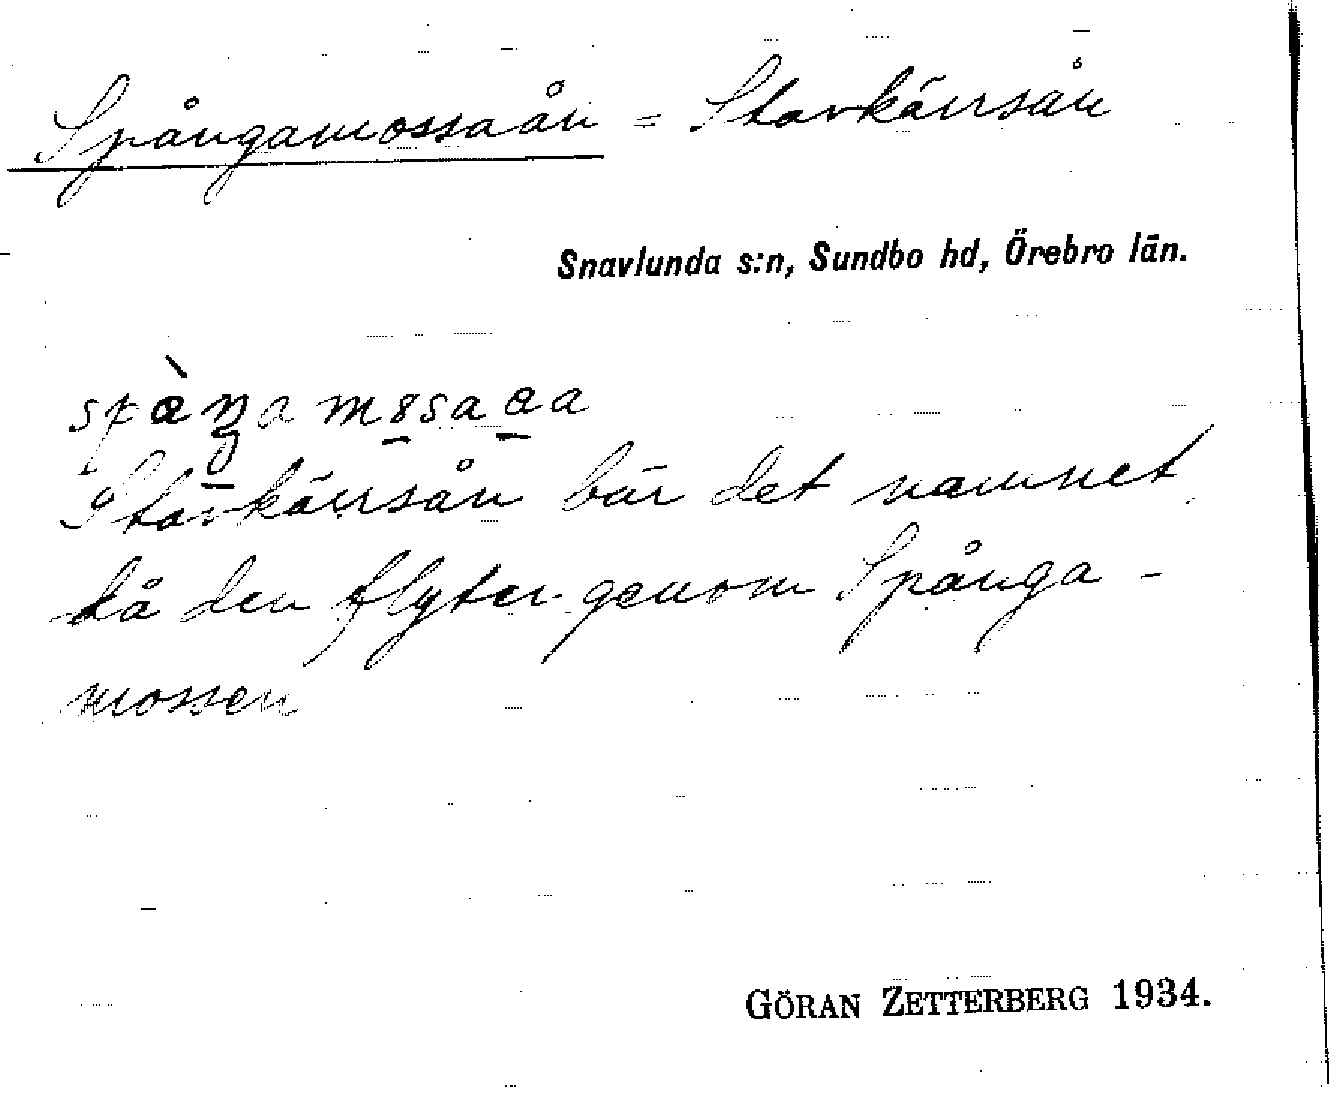 Spångamossaån = Stavkärrsån
Snavlunda s:n, Sundbo hd, Örebro län.
Stavkärrsån bär det namnet
då den flyter genom Spånga-
mossen
GÖRAN ZETTERBERG 1934.